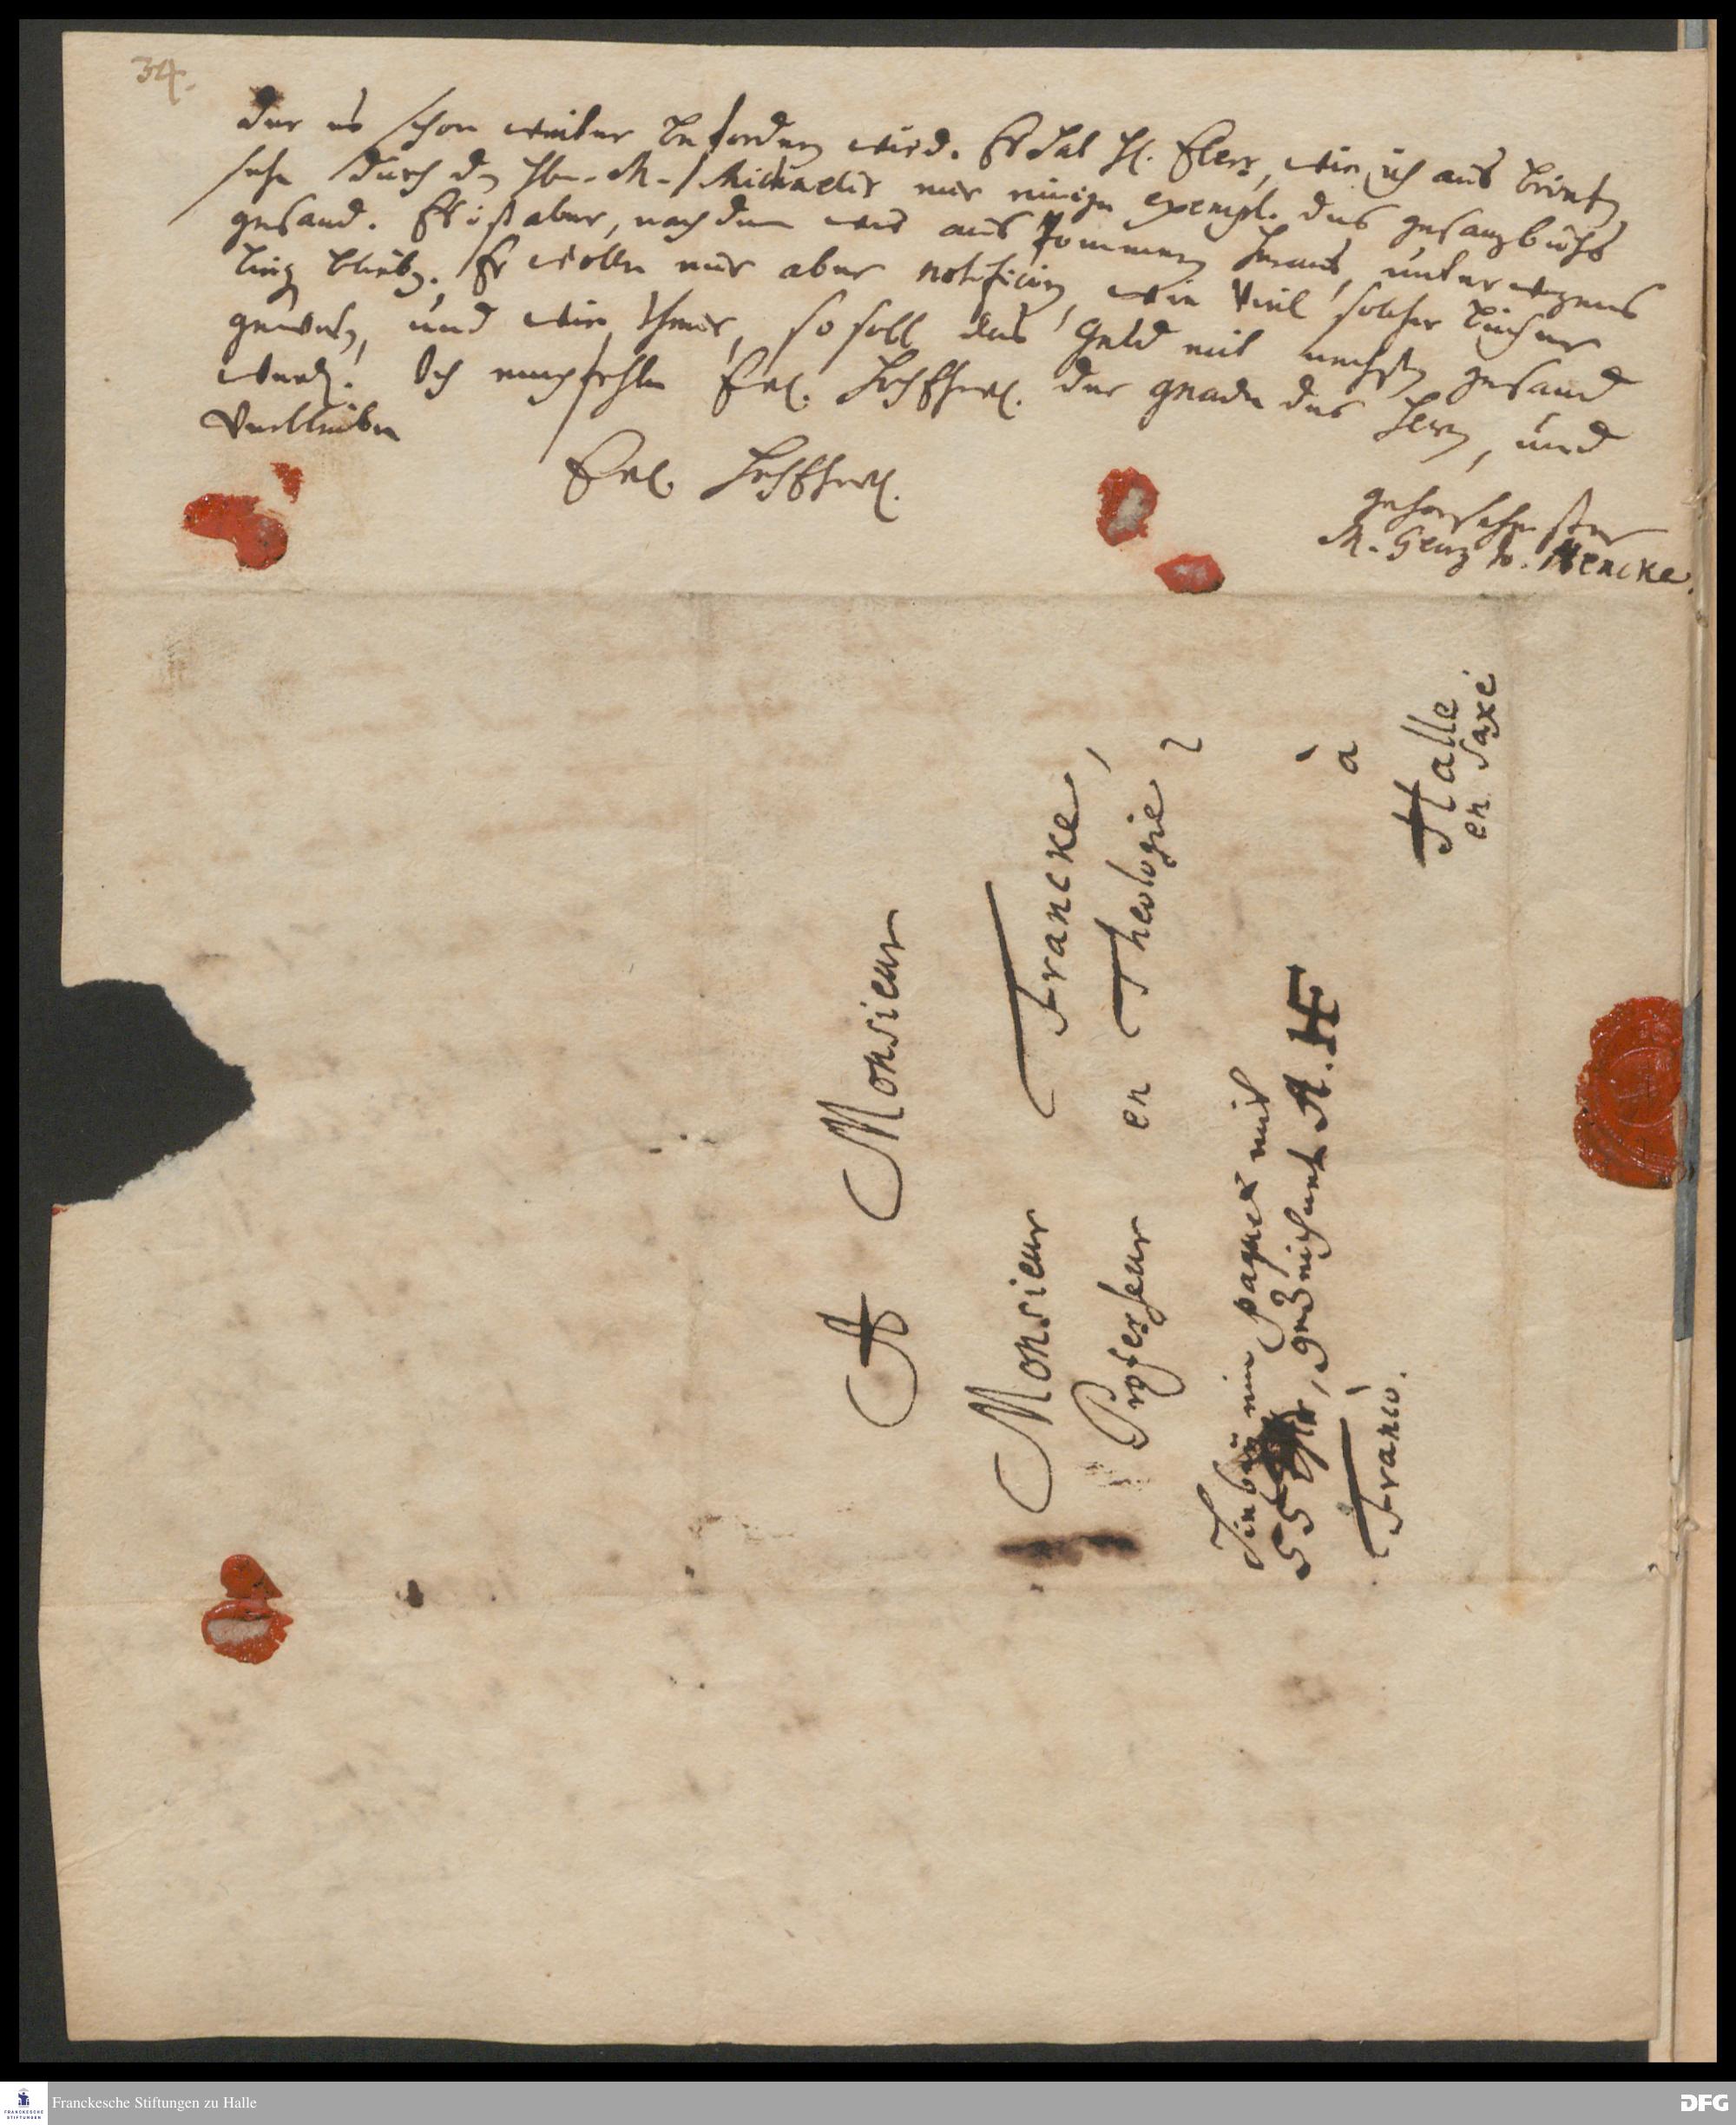 34.
der es schon weiter befordern wird. Es hat H. Elers, wie ich aus briefen
sehe durch den Hrn. M. Michaelis mir einige exempl. des gesangbuchs
gesand. Es ist aber, nach dem wir aus Pommern heraus, unterwegens
liegen blieben. Er wolle mir aber notificiren, wie viel solcher bücher
gewesen, und wie theuer, so soll das geld mit nechsten gesand
werden. Ich empfehle Ew. HochEhrw. der gnade des Herrn, und
verbleibe
Ew. HochEhrw.
gehorsahmster
M. Georg Hencke.
A Monsieur
Monsieur Francke,
Professeur en Theologie
Hiebey ein paquet mit
55 , gezeichnet A. HF
à
Franco.
Halle
en Saxe
Franckesche Stiftungen zu Halle
DFG